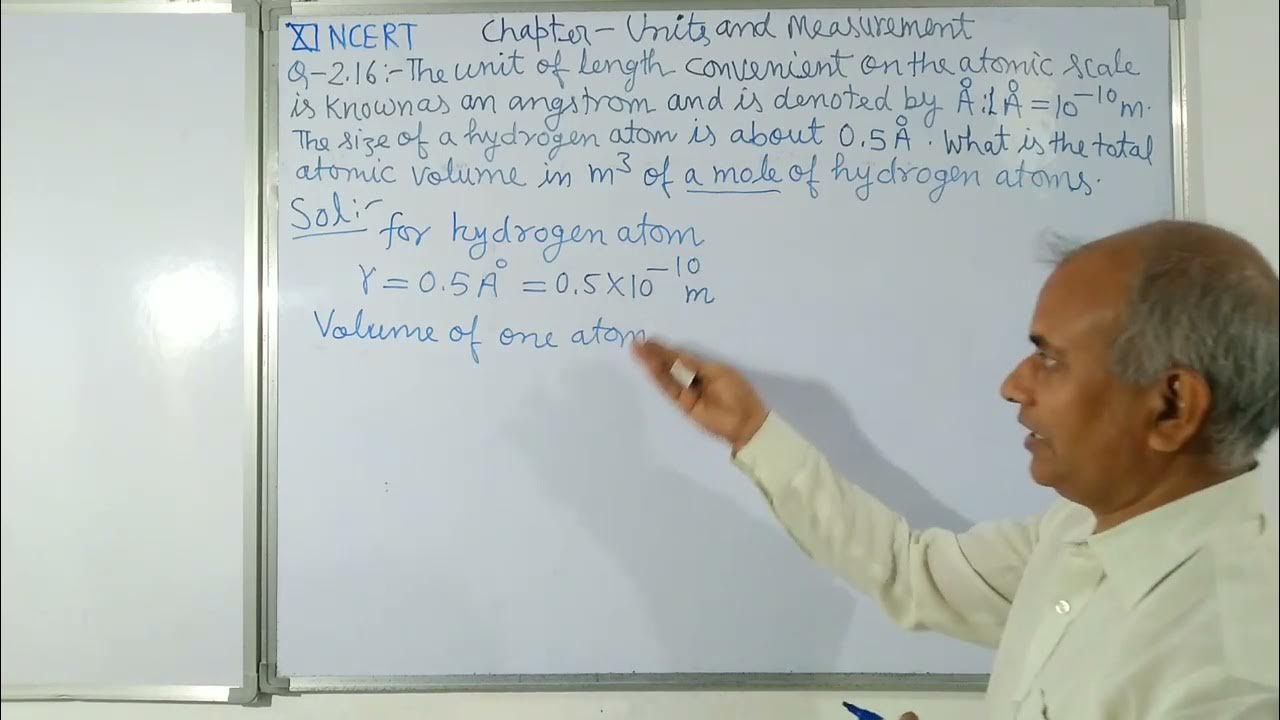 XI NCERT Chapter - Units and Measurement
Q-2.16:- The unit of length convenient on the atomic scale
is known as an angstrom and is denoted by Å: 1Å = 10⁻¹⁰ m.
The size of a hydrogen atom is about 0.5Å. What is the total
atomic volume in m³ of a mole of hydrogen atoms.
Sol:- for hydrogen atom
r = 0.5Å = 0.5×10⁻¹⁰ m
Volume of one atom